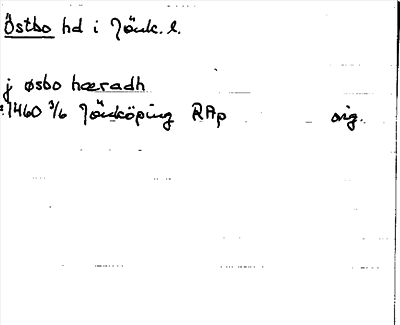 Östbo hd i Jönk. l.
j øsbo hæradh
1460 3/6 Jönköping RAp orig.